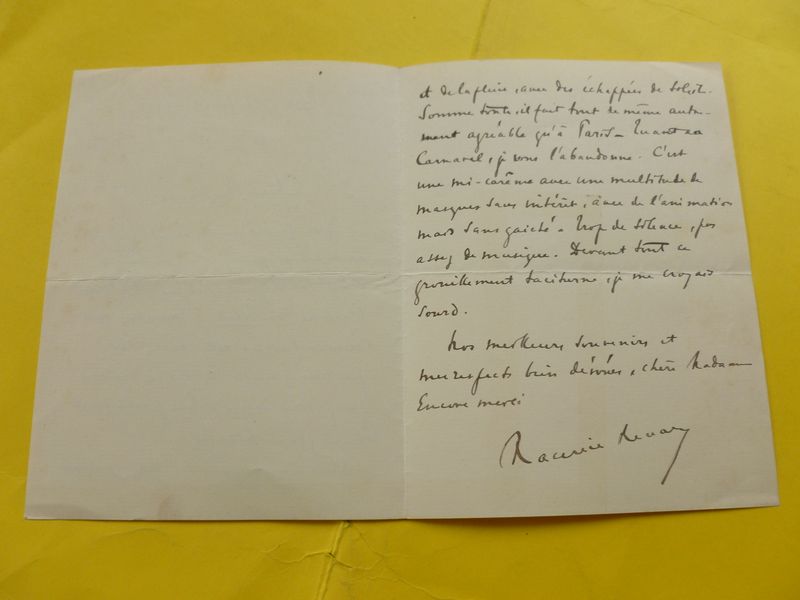 et de la pluie, avec des échappées de soleil.
Somme toute, il fait tout de même autre-
ment agréable qu'à Paris – Quant au
Carnaval, je vous l'abandonne. C'est
une mi-carême avec une multitude de
masques sans intérêt, avec de l'animation
mais sans gaieté – trop de silence, pas
assez de musique. Devant tout ce
grouillement taciturne, je me croyais
sourd.
Nos meilleurs souvenirs et
mes respects bien dévoués, chère Madame
Encore merci
Maurice Renard